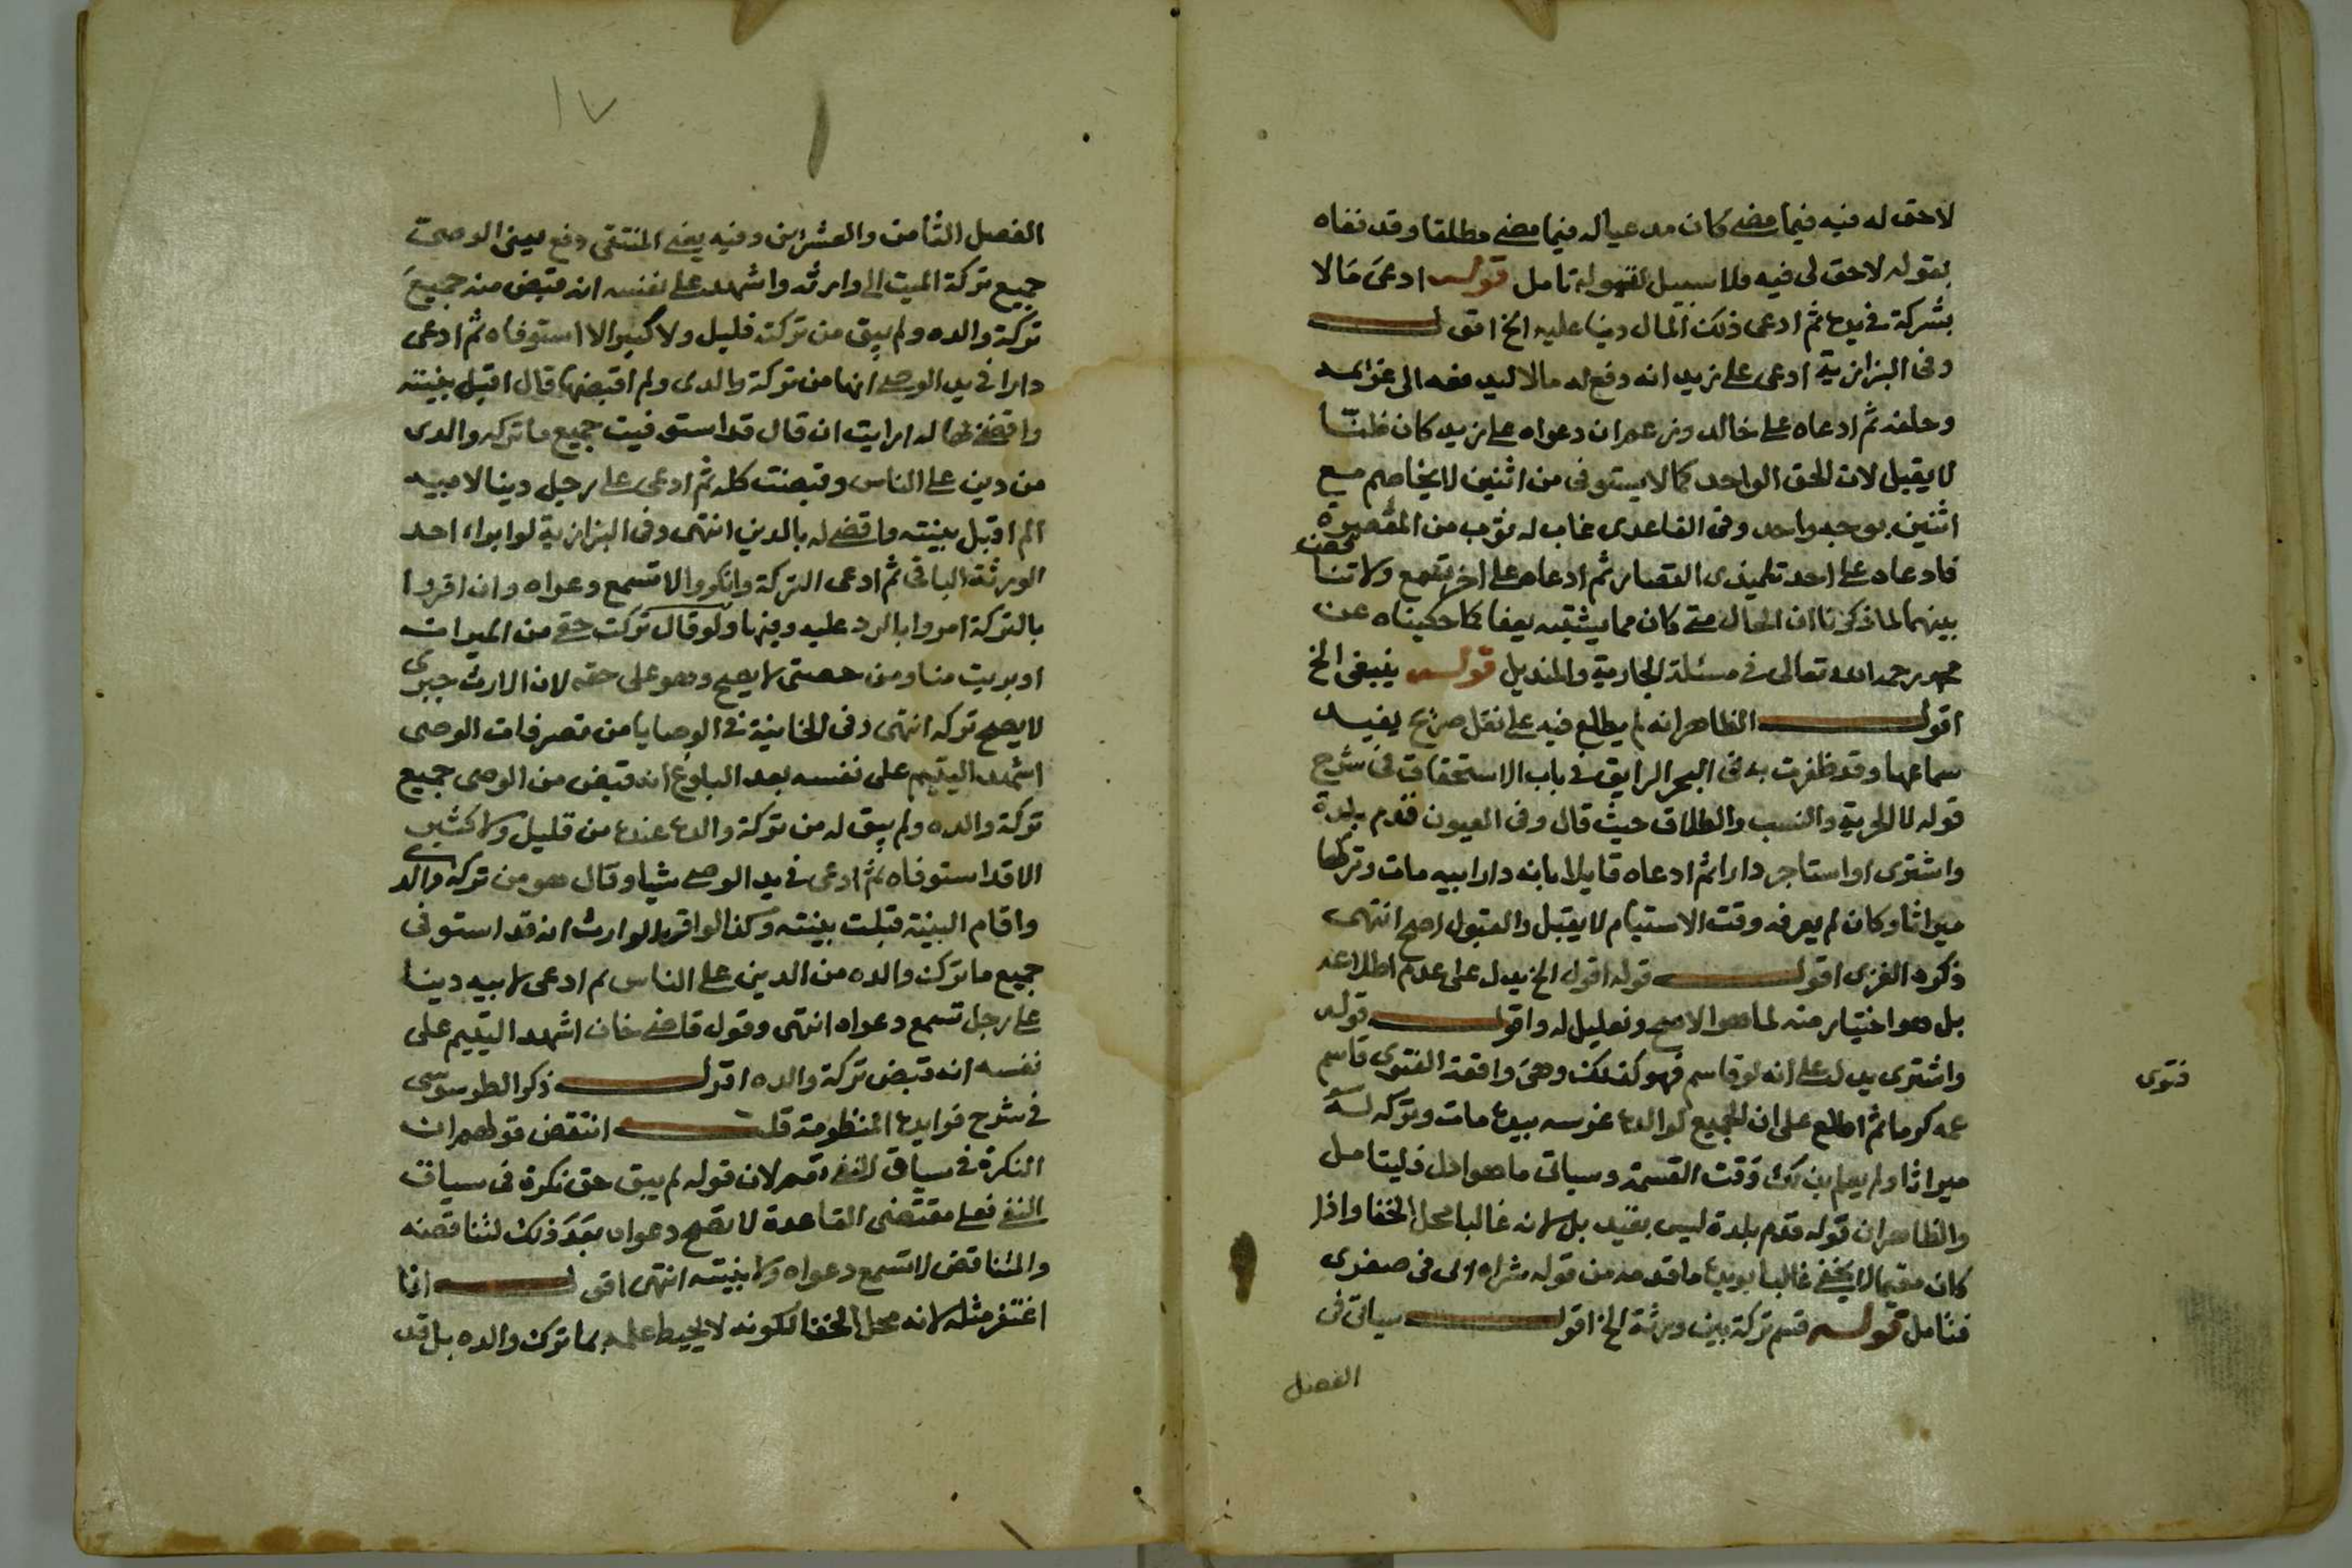 لاحق له فيه فيما مضے كان مدعيا له فيما مضے مطلقا وقد نفاه
بقوله لاحق لى فيه فلا سبيل لقبوله تامل قولـه ادعى مالا
بشركة فى يده ثم ادعى ذلك المال دينا عليه الخ اقول
وفى البزازية ادعى على زيد انه دفع له مالا ليدفعه الى غريمه
وحلفه ثم ادعاه على خالد وزعم ان دعواه على زيد كان ظنا
لا يقبل لان الحق الواحد كما لا يستوفى من اثنين لا يخاصم مع
اثنين بوجه واحد وفى القاعدى غاب له ثوب من المقصرة
فادعاه على احد تلميذى القصار ثم ادعاه على اخر تسمع ولا تنا
قض
بينهما لما ذكرنا ان الحال متى كان مما يشتبه يعفا كما حكيناه عن
محمد رحمه الله تعالى فى مسئلة الجارية والمنديل قولـه ينبغى الخ
اقول الظاهر انه لم يطلع فيه على نقل صريح يفيد
سماعها وقد ظفرت به فى البحر الرايق فى باب الاستحقاق فى شرح
قوله لا الحرية والنسب والطلاق حيث قال وفى العيون قدم بلدة
واشترى او استاجر دارا ثم ادعاه قايلا بانه دار ابيه مات وتركها
ميراثا وكان لم يعرفه وقت الاستيام لا يقبل والقبول اصح انتهى
ذكره الغزى اقول قوله اقول الخ يدل على عدم اطلاعه
بل هو اختيار منه لما هو الاصح وتعليل له واقول قوله
واشترى يدل على انه لو قاسم فهو كذلك وهى واقعة الفتوى قاسم
فتوى
عمه كرما ثم اطلع على ان الجميع لوالده غرسه بيده مات وتركه له
ميراثا ولم يعلم بذلك وقت القسمة وسياتى ما هو ادل فليتامل
والظاهر ان قوله قدم بلدة ليس بقيد بل لانه غالبا محل الخفا واذا
كان مقيما لا يخفے غالبا يويده ما قدمه من قوله شراه ابى فى صغرى
فتامل قولـه قسم تركة بين ورثة الخ اقول سياتى فى
الفصل
١٧
الفصل الثامن والعشرين وفيه يعنى المنتقى دفع يعنى الوصى
جميع تركة الميت الى وارثه واشهد على نفسه انه قبض منه جميع
تركة والده ولم يبق من تركته قليل ولا كثير الا استوفاه ثم ادعى
دارا فى يد الوصى انها من تركة والدى ولم اقبضها قال اقبل بينته
واقضى بها له ارايت ان قال قد استوفيت جميع ما تركه والدى
من دين على الناس وقبضت كله ثم ادعى على رجل دينا لابيه
الم اقبل بينته واقضى له بالدين انتهى وفى البزازية لو ابراء احد
الورثة الباقى ثم ادعى التركة وانكروا لا تسمع دعواه وان اقروا
بالتركة امروا بالرد عليه وفيها ولو قال تركت حقى من الميراث
او بريت منها ومن حصتى لا يصح وهو على حقه لان الارث جبرى
لا يصح تركه انتهى وفى الخانية فى الوصايا من تصرفات الوصى
اشهد اليتيم على نفسه بعد البلوغ انه قبض من الوصى جميع
تركة والده ولم يبق له من تركة والده عنده من قليل ولا كثير
الا قد استوفاه ثم ادعى فى يد الوصى شيا وقال هو من تركة والدى
واقام البينة قبلت بينته وكذا لو اقر الوارث انه قد استوفى
جميع ما ترك والده من الدين على الناس ثم ادعى لابيه دينا
على رجل تسمع دعواه انتهى وقول قاضى خان اشهد اليتيم على
نفسه انه قبض تركة والده اقول ذكر الطرسوسى
فى شرح فوايده المنظومة قلت انتقض قولهم ان
النكرة فى سياق النفى تعم لان قوله لم يبق حق نكرة فى سياق
النفى فعلى مقتضى القاعدة لا تصح دعواه بعد ذلك لتناقضه
والمتناقض لا تسمع دعواه ولا بينته انتهى اقول انا
اغتفر مثله لانه محل الخفا لكونه لا يحيط علمه بما ترك والده بل قد